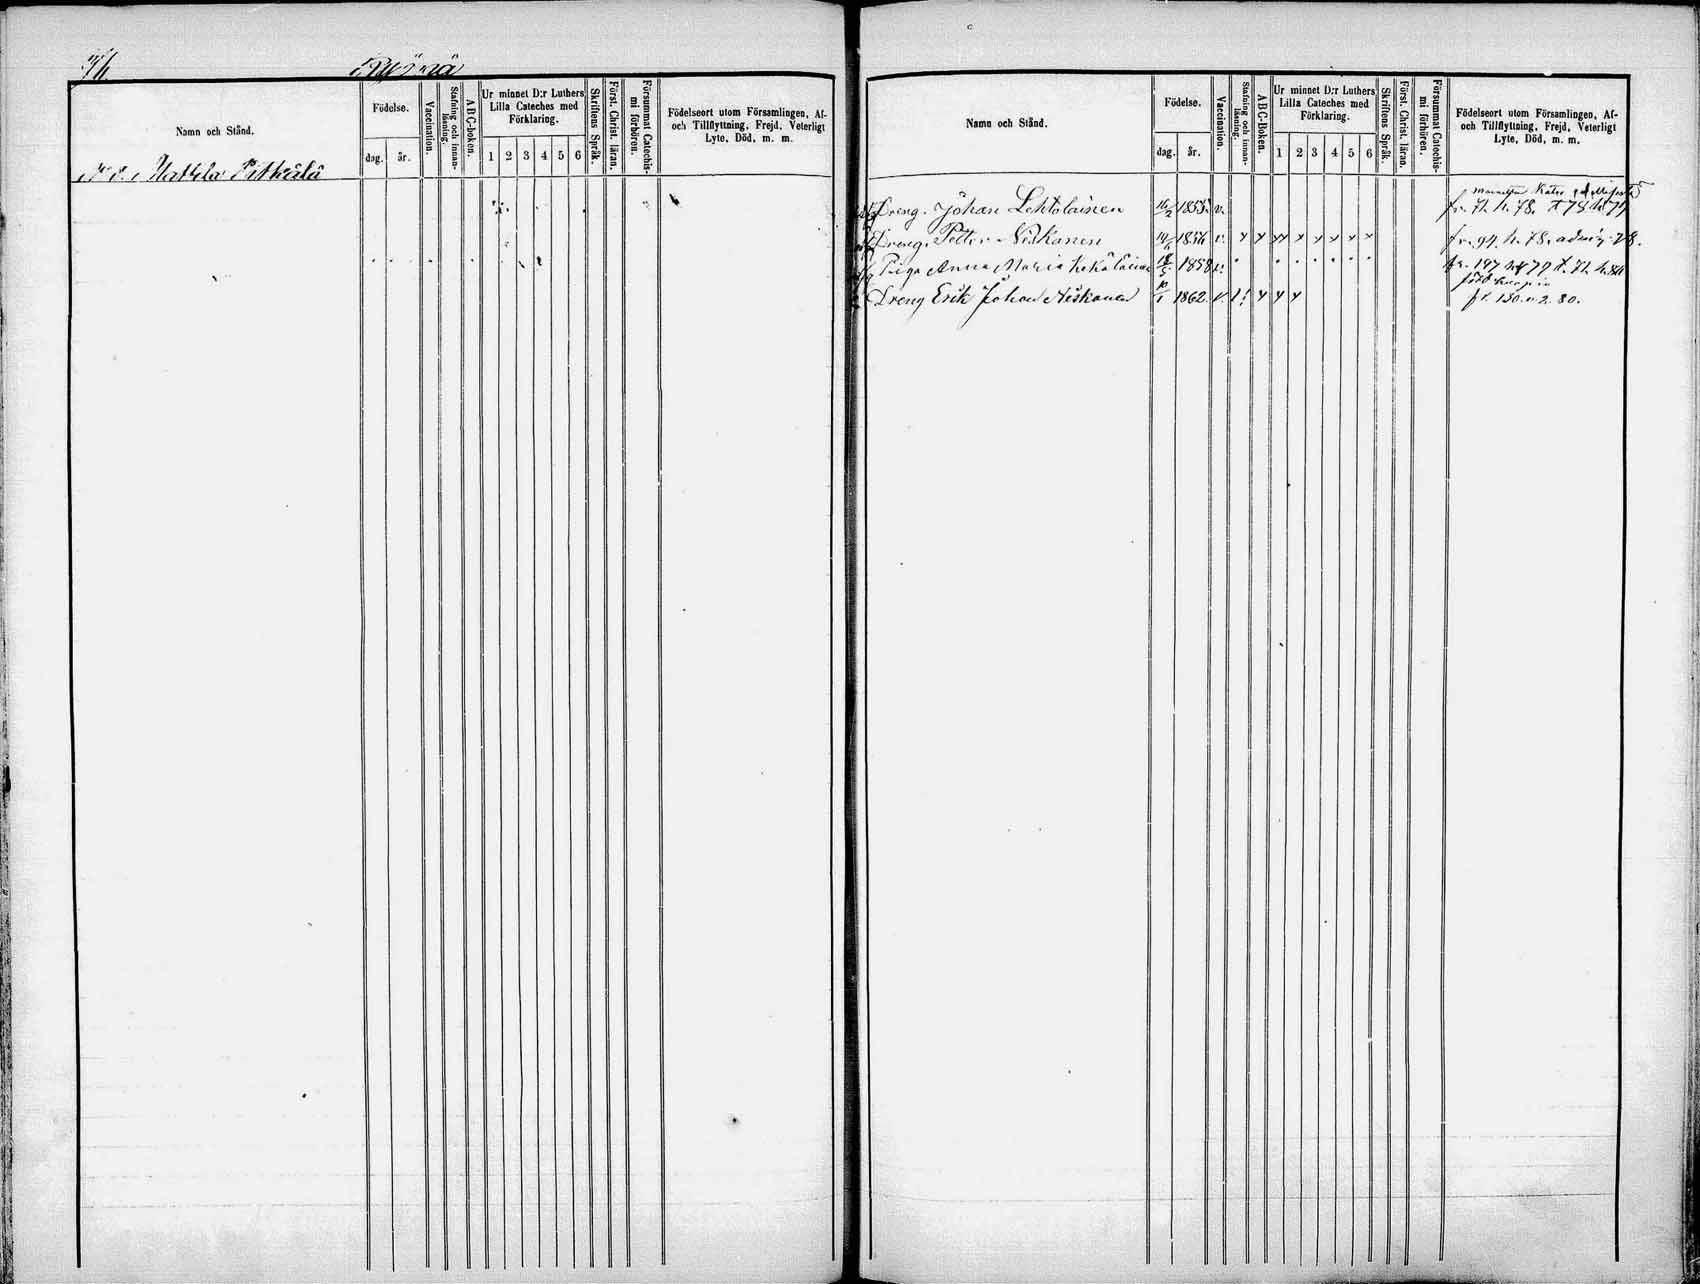 Namn och Stånd.
Födelse.
dag. år.
Vaccination.
Stafning och innanläsning.
ABC-boken.
Ur minnet D:r Luthers
Lilla Cateches med
Förklaring.
1 2 3 4 5 6
Skriftens Språk.
Först. Christ. läran.
Försummat Catechismi förhören.
Födelseort utom Församlingen, Af-
och Tillflyttning, Frejd, Veterligt
Lyte, Död, m. m.
Mattila Pitkälä
Namn och Stånd.
Födelse.
dag. år.
Vaccination.
Stafning och innanläsning.
ABC-boken.
Ur minnet D:r Luthers
Lilla Cateches med
Förklaring.
1 2 3 4 5 6
Skriftens Språk.
Först. Christ. läran.
Försummat Catechismi förhören.
Födelseort utom Församlingen, Af-
och Tillflyttning, Frejd, Veterligt
Lyte, Död, m. m.
Dreng. Johan Lehtolainen 16/2 1855 v. fr. 72. h. 78.
Dreng. Petter Niskanen 1856 v. x x x x x x x x fr. 94. h. 78.
Piga Anna Maria 1858 v. fr. 197
Dreng Erik Johan Niskanen 10/1 1862. v. x x x
fr. 130. v. 2. 80.